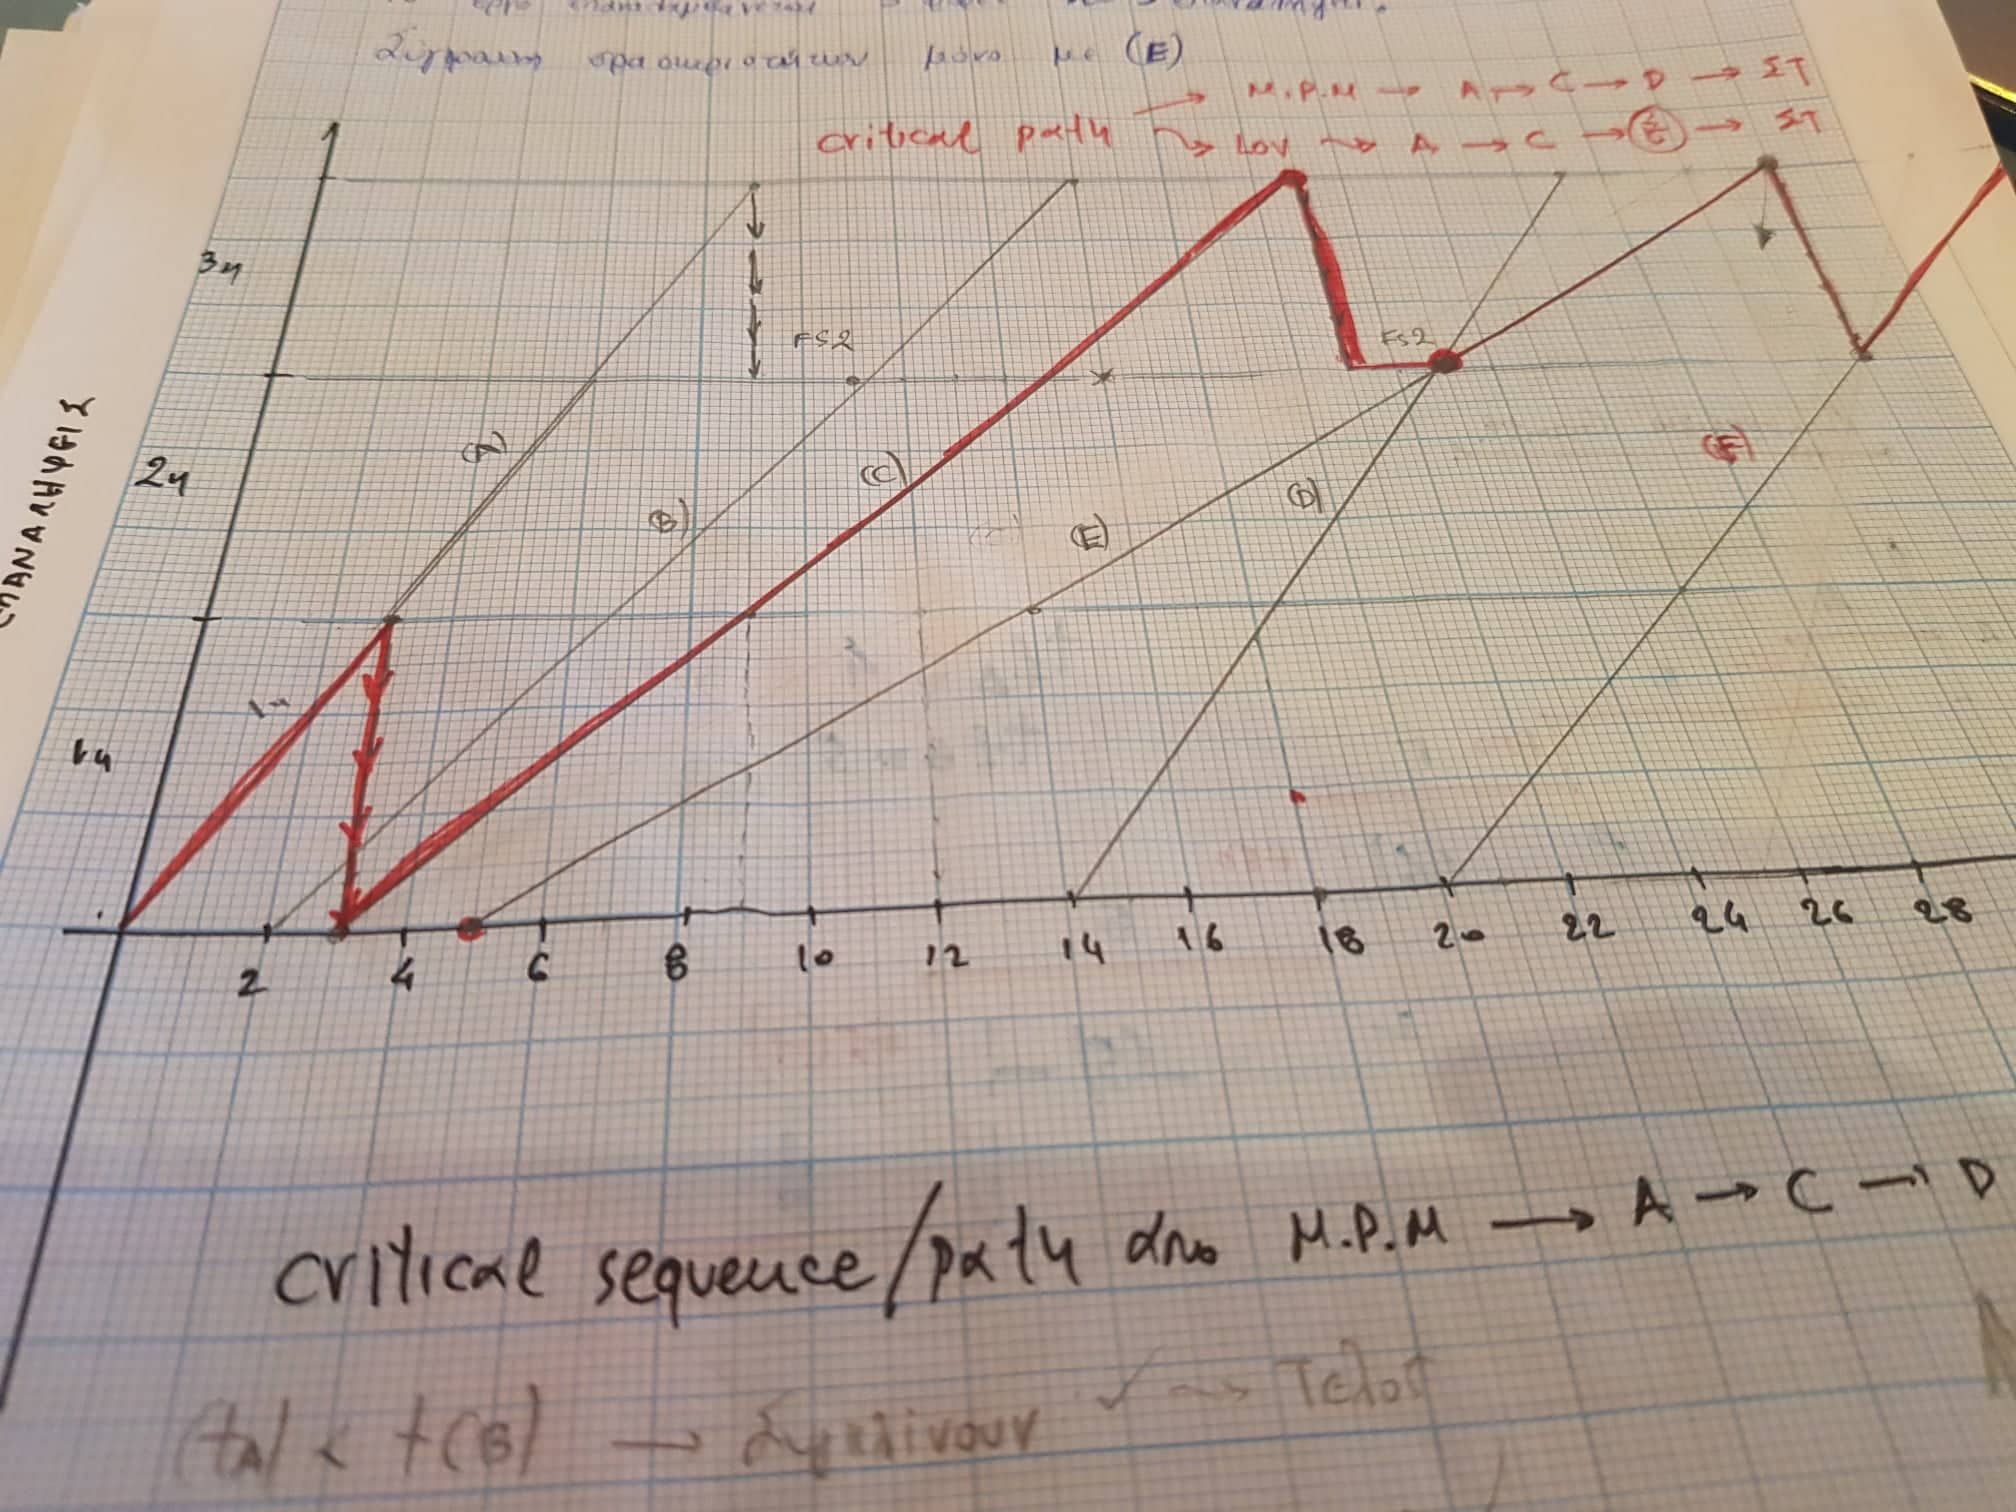 μόνο με (E)
M.P.M → A → C → D → ΣΤ
critical path
LOV → A → C → → ΣΤ
3η
FS2
FS2
(A)
2η
(B)
(C)
(E)
(D)
(F)
ΕΠΑΝΑΛΗΨΕΙΣ
1η
1η
2 4 6 8 10 12 14 16 18 20 22 24 26 28
critical sequence/path από M.P.M → A → C → D
(tA) < t(B) → Συγκλίνουν ✓ → Τέλος